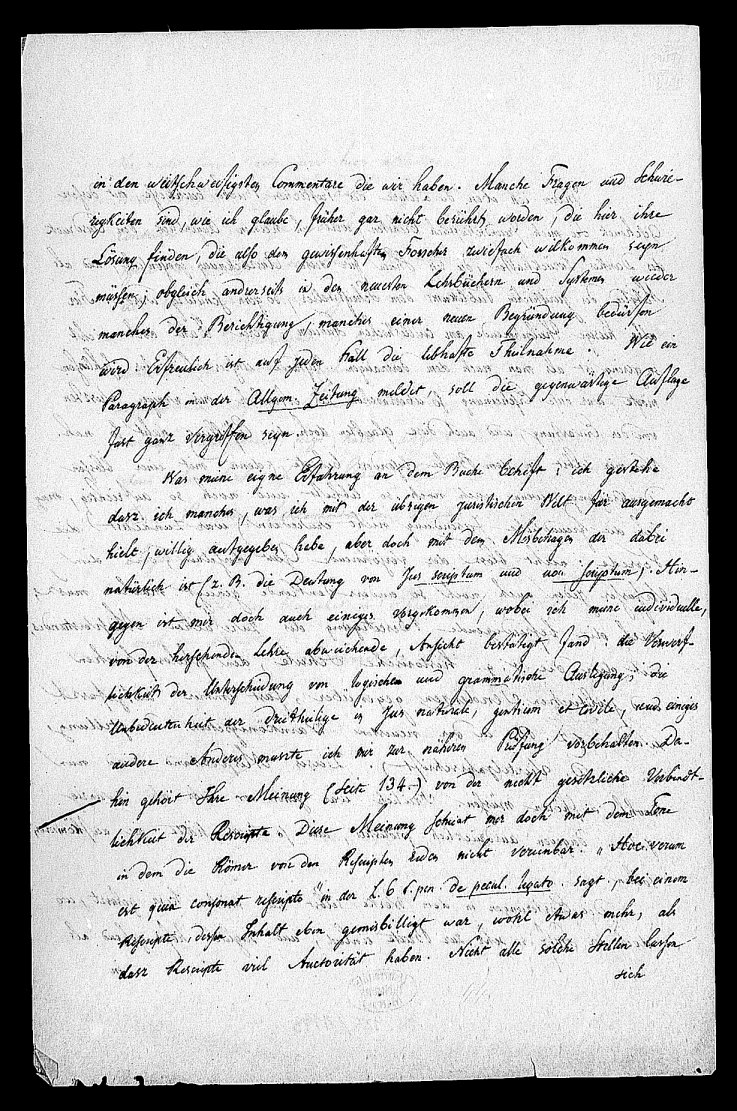 in den weitschweifigsten Commentare die wir haben. Manche Fragen und Schwie-
rigkeiten sind, wie ich glaube, früher gar nicht berührt worden, die hier ihre
Lösung finden, die also dem gewissenhaften Forscher zwiefach willkommen seyn
müssen, obgleich andrerseits in den neuesten Lehrbüchern und Systemen wieder
manches der Berichtigung, manches einer neuen Begründung bedürfen
wird. Erfreulich ist auf jeden Fall die lebhafte Theilnahme. Wie ein
Paragraph in der Allgem. Zeitung meldet, soll die gegenwärtige Auflage
fast ganz vergriffen seyn.
Was meine eigne Erfahrung an dem Buche betrift, ich gestehe
dasz ich manches, was ich mit der übrigen juristischen Welt für ausgemacht
hielt, willig aufgegeben habe, aber doch mit dem Misbehagen der dabei
natürlich ist (z. B. die Deutung von Jus scriptum und non scriptum). Hin-
gegen ist mir doch auch einiges vorgekommen, wobei ich meine individuelle,
von der herrschenden Lehre abweichende, Ansicht bestätigt fand: die Verwerf-
lichkeit der Unterscheidung von logischer und grammatische Auslegung, die
Unbedeutenheit der dreitheilige in Jus naturale, gentium et civile, und einiges
andere. Anderes musste ich mir zur nähern Prüfung vorbehalten. Da-
hin gehört Ihre Meinung (Seite 134.) von der nicht gesetzliche Verbindt-
lichkeit der Rescripte. Diese Meinung scheint mir doch mit dem Tone
in dem die Römer von den Rescripten reden nicht vereinbar. „Hoc verum
est quia consonat rescripto" in der L. 6 §. pen. de pecul. legato. sagt, bei einem
Rescripte dessen Inhalt eben gemisbilligt war, wohl etwas mehr, als
dasz Rescripte viel Auctorität haben. Nicht alle solche Stellen lassen
sich